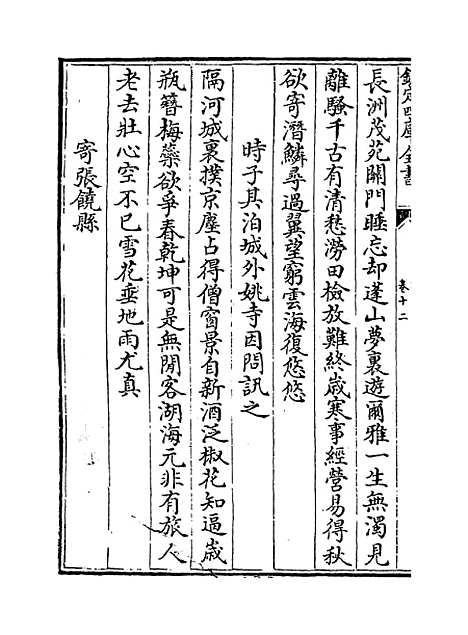 欽定四庫全書
卷十二
長洲茂苑關門睡忘却蓬山夢裏遊爾雅一生無濁見
離騷千古有清愁澇田檢放難終歲寒事經營易得秋
欲寄潛鱗尋過翼望窮雲海復悠悠
時子具泊城外姚寺因問訊之
隔河城裏撲京塵占得僧窗景自新酒泛椒花知逼歲
瓶簪梅蘂欲爭春乾坤可是無閒客湖海元非有旅人
老去壯心空不已雪花垂地雨尤真
寄張饒縣